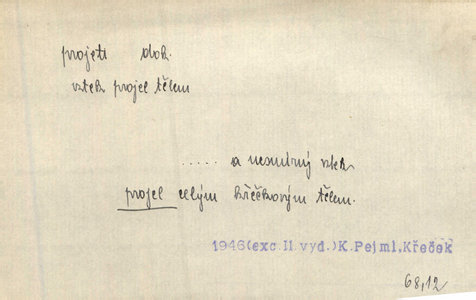 projeti dok.
vztek projel tělem
..... a nesmírný vztek
projel celým křečkovým tělem.
1946(exc.II.vyd.)K.Pejml.Křeček
68,12